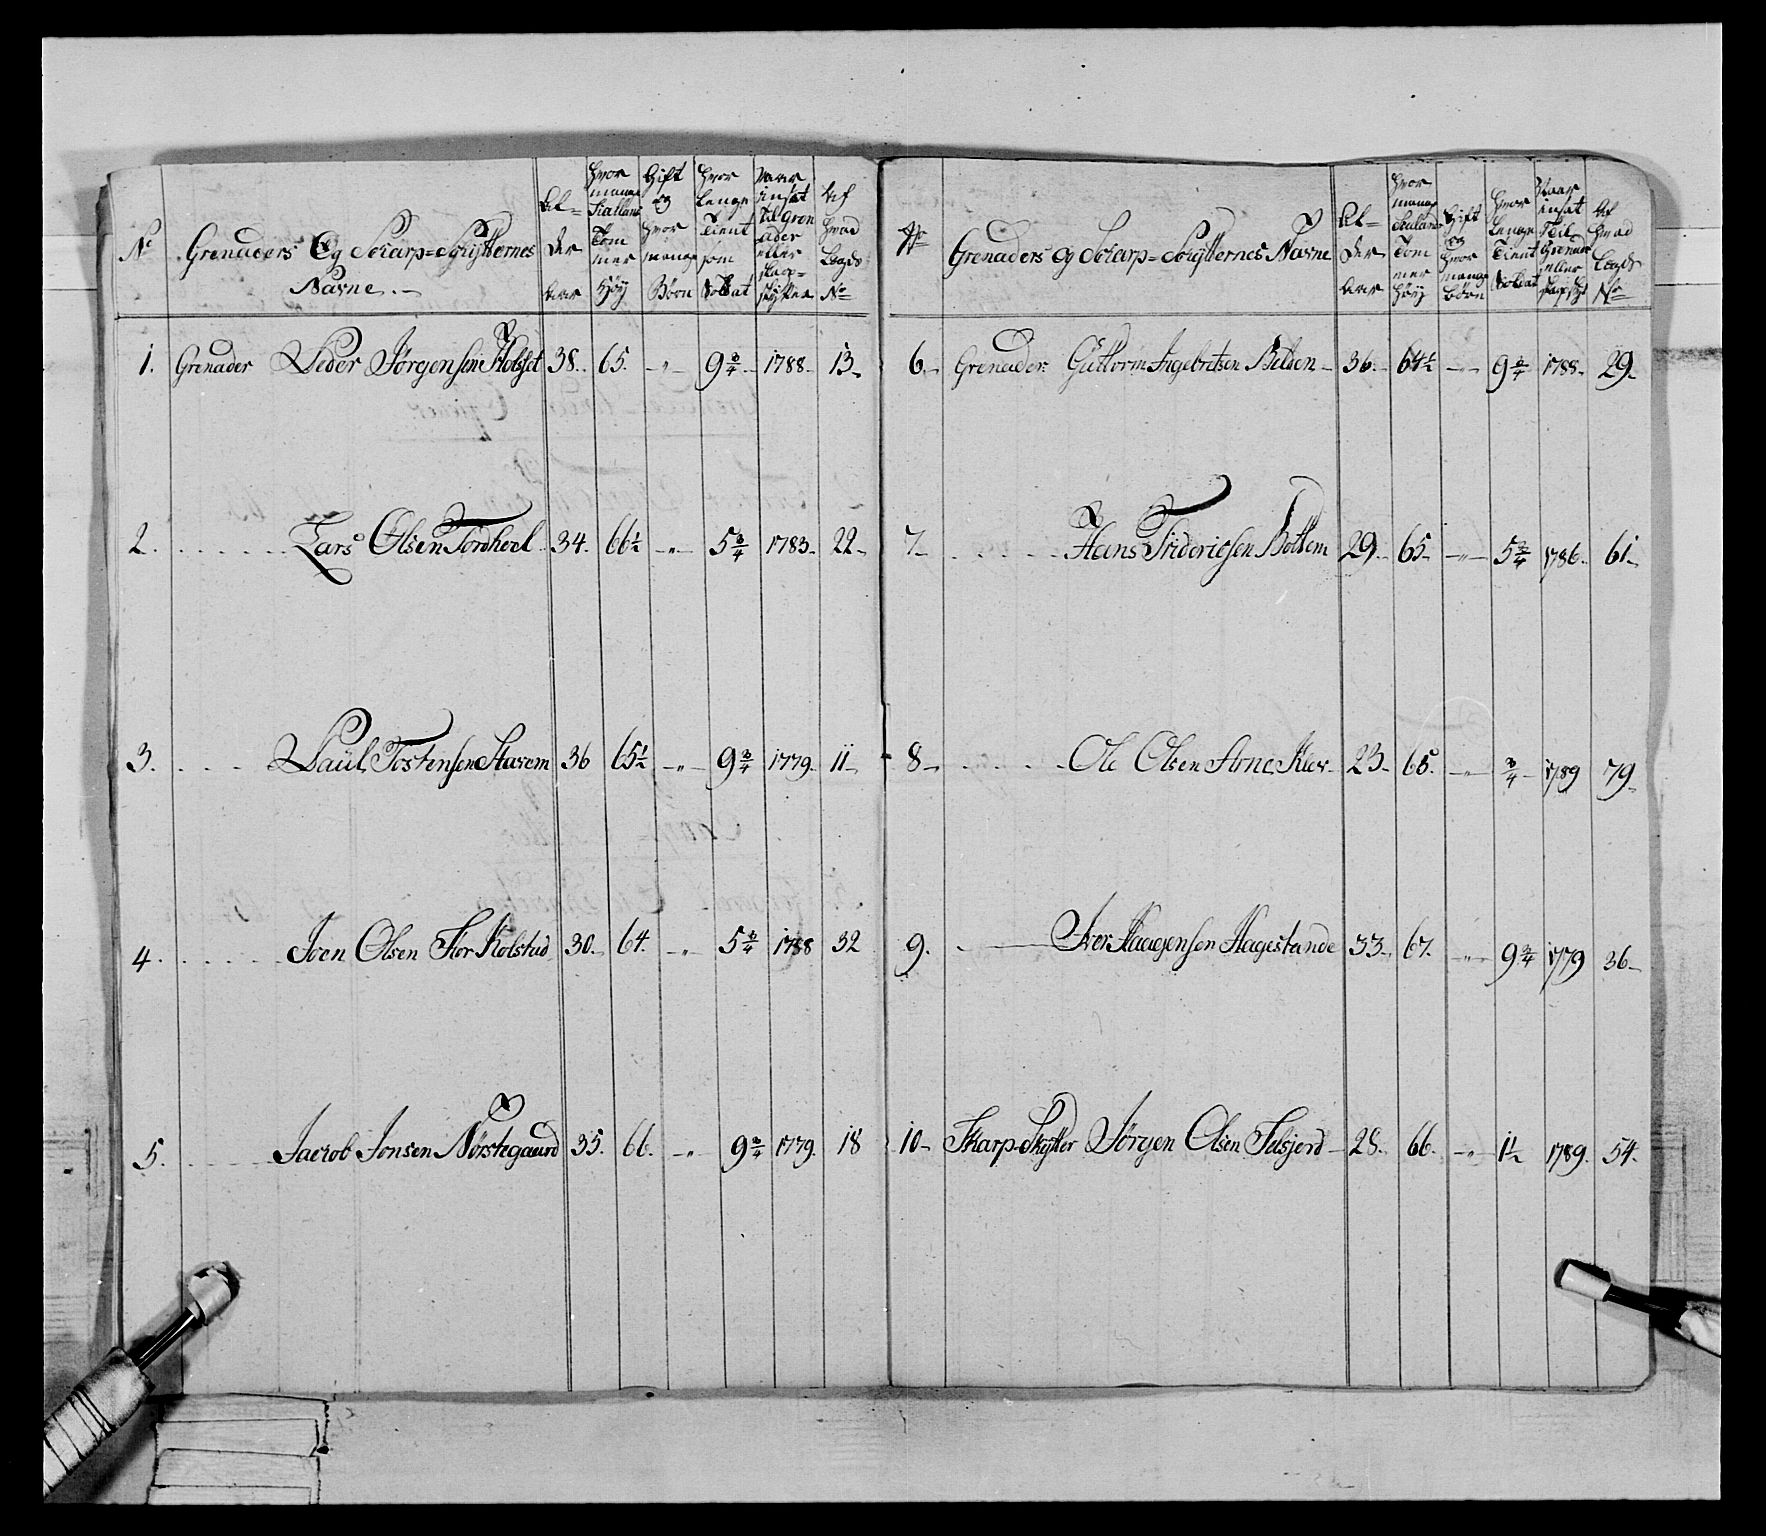 No
Grenaders Og Skarp=Skytternes
Navne.
Al=
der
Aar
Hvor
mange
Siællans
Tom
mer
Høy
Gift
og
hvor
mange
Børn
Hvor
lenge
Tient
som
Soldat
Naar
insat
Til Gren
ader
eller
skarp=
skytter
Af
hvad
Lægds
No
1. Grenader Peder Jørgensen 38. 65. -"- 9 3/4 1788. 13
2. Lars Olsen Tordhoel 34. 66 1/2 -"- 5 3/4 1783. 22
3. Paul Tostensen Starem 36 65 1/2 -"- 9 3/4 1779. 11
4. Joen Olsen Flor Kolstad 30. 64. -"- 5 3/4 1788 32
5. Jacob Jonsen Nørstegaard 35. 66. -"- 9 3/4 1779. 18
No
Grenaders og Skarp=Skytternes Navne
Al=
der
Aar
Hvor
mange
Sealans
Tom
mer
Høy
Gift
og
Hvor
mange
Børn
Hvor
lenge
Tient
Soldat
Naar
insat
Til
Grenader
eller
Af
Hvad
Lægds
No
6. Grenader Guttorm Ingebretsen 36. 64 1/2 -"- 9 3/4 1788. 29
7. Hans Friderichsen Bottem 29. 65 -"- 5 3/4 1786. 61
8. Ole Olsen Arne Klev 23 65. -"- 3/4 1789 79
9. Iver Haagensen Hagestande 33. 67. -"- 9 3/4 1779 36
10. Skarp-Skytter Jørgen Olsen 28. 66. -"- 1 1/2 1789. 54.